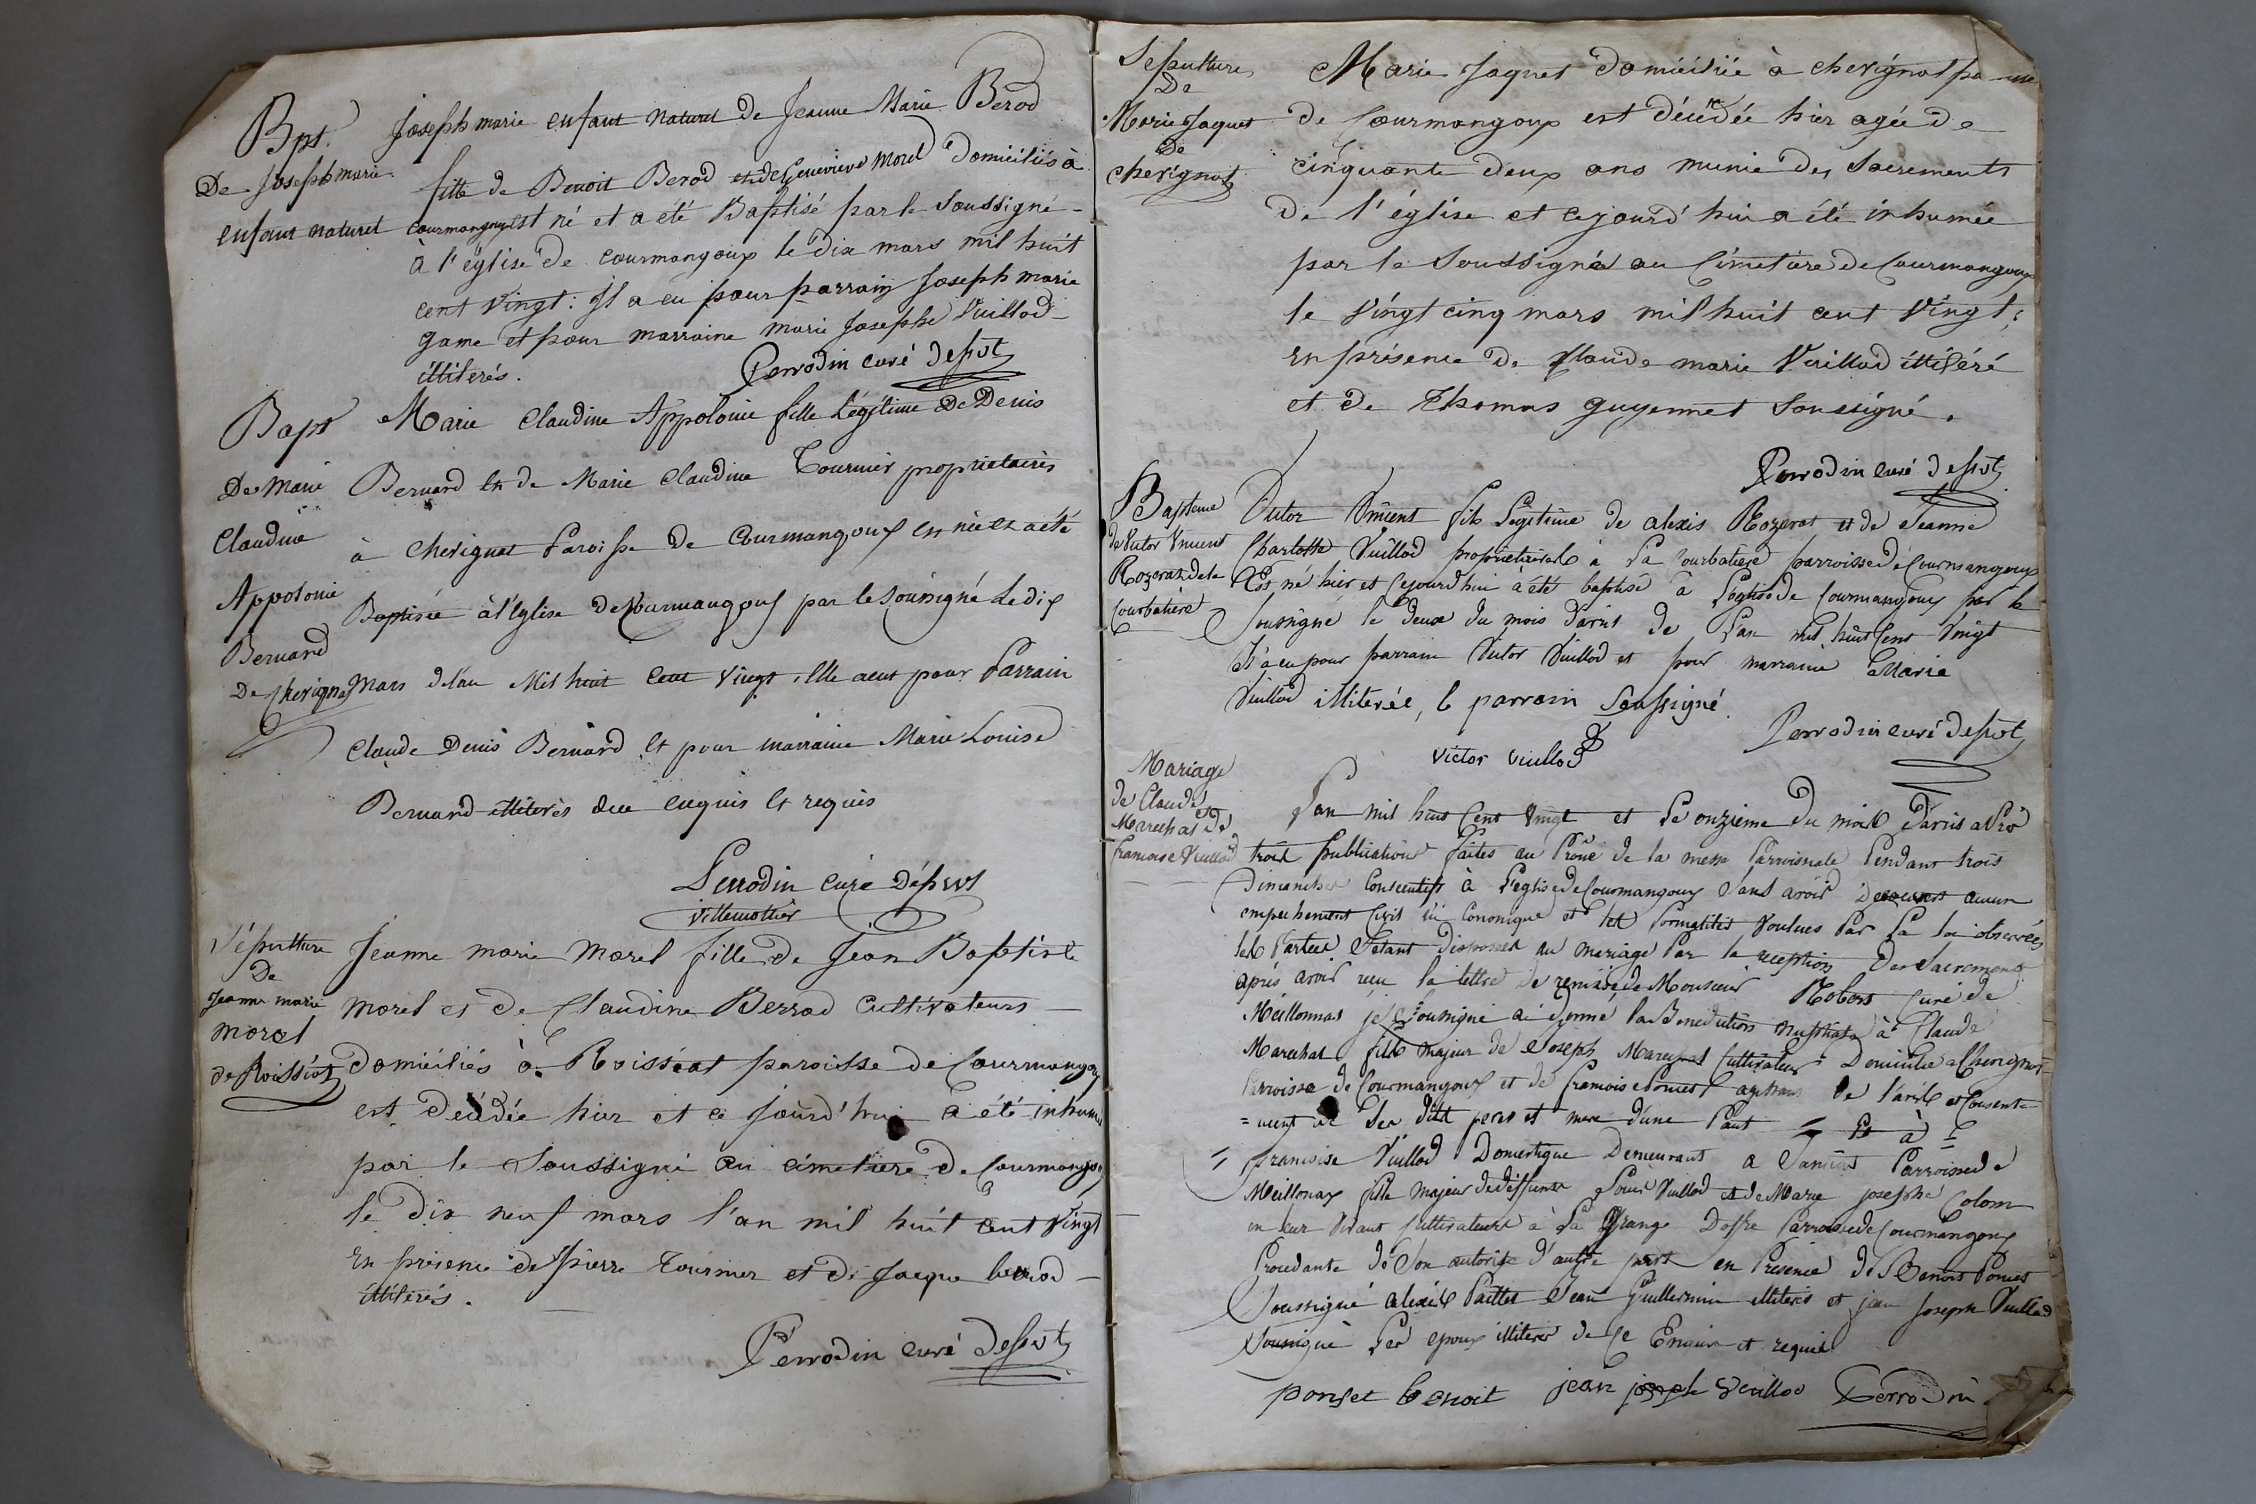 Bpt.
De Joseph marie
enfant naturel
Joseph marie enfant naturel de Jeanne Marie Bérod
fille de Benoit Berod et de Genevieve Morel Domiciliés à
courmangoux est né et a été Baptisé par le Soussigné
à l'église de courmangoux le dix mars mil huit
cent vingt: Il a eu pour parrain Joseph marie
game et pour marraine marie Josephe Vuillod
illiterés.
Perrodin curé dessvt
Bapt
De Marie
Claudine
Appolonie
Bernard
De Cherignat
Marie Claudine Appolonie fille Légitime De Denis
Bernard et de Marie Claudine Tournier propriétaires
à Cherignat Paroisse De Courmangoux est née et a été
Baptisée à l'Eglise De Courmangoux par le Soussigné Le dix
Mars de l'an Mil huit Cent Vingt, Elle a eut pour Parrain
Claude Denis Bernard et pour marraine Marie Louise
Bernard illiterés de ce enquis et requis
Perrodin curé Dessvt
Villemottier
Sépulture
De
Jeanne marie
Morel
de Roissiat
Jeanne marie Morel fille de Jean Baptiste
Morel et de Claudine Berrod Cultivateurs
domiciliés à Roissiat paroisse de Courmangoux
est décédée hier et ce jourd'hui a été inhumé
par le Soussigné au cimetiere de Courmangoux
le dix neuf mars l'an mil huit cent vingt
En présence de pierre Tournier et de Jacque berrod
illiterés.
Perrodin curé dessvt
Sepulture
De
Marie Jaquet
De
cherignat
Marie Jaquet domiciliée à cherignat
de Courmangoux est décédée hier agée de
cinquante deux ans munie des Sacrements
de l'église et cejourd'hui a été inhumée
par le Soussigné au Cimetiere de Courmangoux
le vingt cinq mars mil huit cent vingt;
en présence de Claude marie Vuillod illiséré
et de Thomas guyennet Soussigné.
Perrodin curé dessvt
Bapteme
de Victor Vincent
Rozerat de la
Courbatière
Victor Vincent fils Légitime de alexis Rozerat et de Jeanne
Charlotte Vuillod propriétaires à La Courbatière parroisse de Courmangoux
Est né hier et cejourd'hui à été baptisé à L'église de Courmangoux par le
Soussigné le deux du mois d'avril de L'an mil huit Cent Vingt
Il a eu pour parrain Victor Vuillod et pour marraine Marie
Vuillod illiterée, le parrain Soussigné.
Perrodin curé dessvt
victor vuillod
Mariage
de Claude
Marechal et de
francoise Vuillod
L'an mil huit Cent Vingt et Le onzieme du mois d'avril aprés
trois publications faites au Prône de la messe Parroissiale Pendant trois
Dimanches Consecutifs à L'eglise de Courmangoux Sans avoir Decouvert aucun
empechement Civil ni Cononique et les formalités voulues Par La Loi observées
les Parties S'etant disposées au mariage Par la reception Des Sacrements
aprés avoir recu la lettre de remise de Monsieur Robert Curé de
Meillonnas je Soussigné ai donné la Benediction nuptiale à Claude
Marechal fils majeur de Joseph Marechal Cultivateur Domicilié a Cherignat
Parroisse de Courmangoux et de francoise Poncet de l'avis et Consente=
=ment de Ses dits peres et mere d'une Part Et à
francoise Vuillod Domestique Demeurant a Sanciat Parroisse de
Meillonas fille majeur de deffunt Louis Vuillod et de Marie josephe Colom
en leur Vivant Cultivateurs à La Grange Parroisse de Courmangoux
Procedante de Son autorité d'autre part en Presence de Benoit Poncet
Soussigné alexis Paillet Jean Guillermin illiterés et jean Joseph Vuillod
Soussigné Les epoux illiteres de Ce Enquis et requis
ponset benoit jean joseph vuillod Perrodin